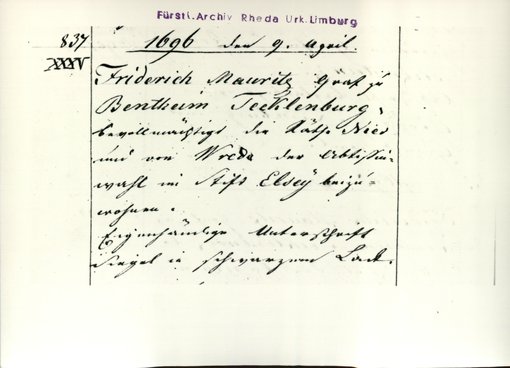 Fürstl. Archiv Rheda Urk. Limburg
837 1696 den 9. April.
XXXV
Friderich Mauritz Graf zu
Bentheim Tecklenburg,
bevollmächtigt die Räthe Nies
und von Wreda der Abtissin-
wahl im Stift Elsey beizu-
wohnen.
Eigenhändige Unterschrift
Siegel in schwarzem Lack.